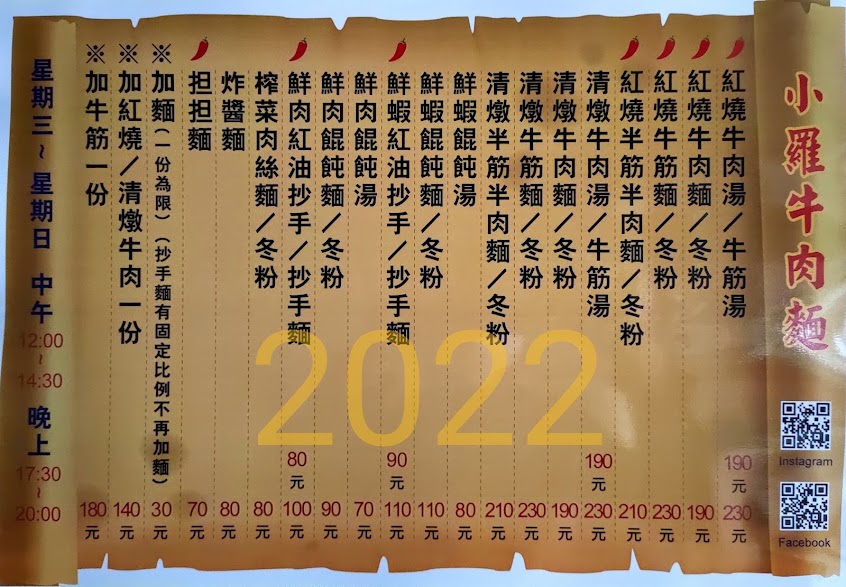 小羅牛肉麵
Instagram
Facebook
紅燒牛肉湯／牛筋湯 190元 230元
紅燒牛肉麵／冬粉 190元
紅燒牛筋麵／冬粉 230元
紅燒半筋半肉麵／冬粉 210元
清燉牛肉湯／牛筋湯 190元 230元
清燉牛肉麵／冬粉 190元
清燉牛筋麵／冬粉 230元
清燉半筋半肉麵／冬粉 210元
鮮蝦餛飩湯 80元
鮮蝦餛飩麵／冬粉 110元
鮮蝦紅油抄手／抄手麵 90元 110元
鮮肉餛飩湯 70元
鮮肉餛飩麵／冬粉 90元
鮮肉紅油抄手／抄手麵 80元 100元
榨菜肉絲麵／冬粉 80元
炸醬麵 80元
担担麵 70元
※加麵（一份為限）（抄手麵有固定比例不再加麵） 30元
※加紅燒／清燉牛肉一份 140元
※加牛筋一份 180元
星期三~星期日 中午 12:00~14:30 晚上 17:30~20:00
2022